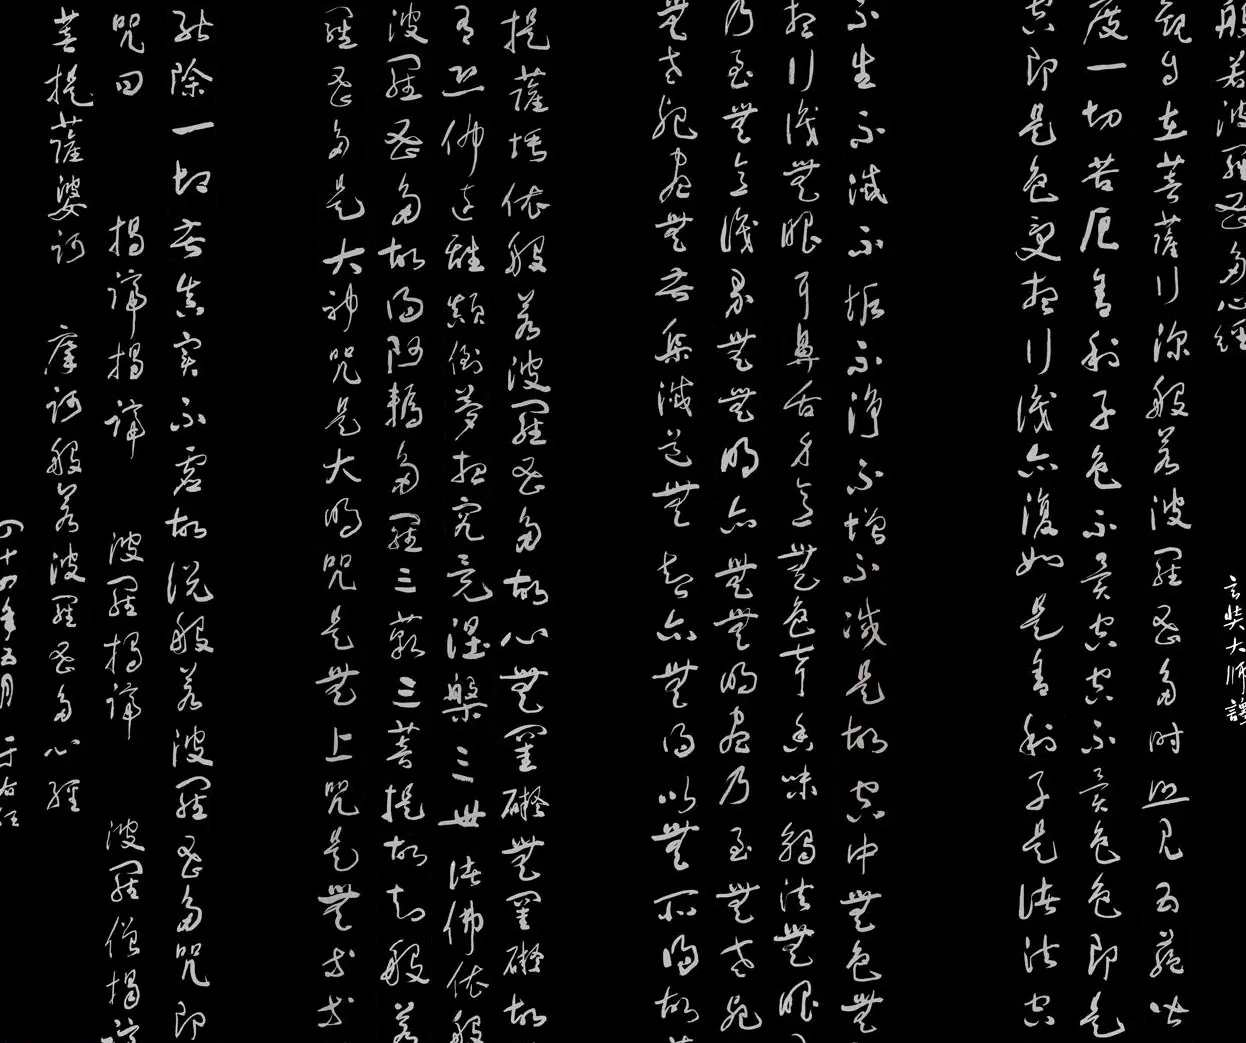 般若波羅蜜多心經
玄奘大師譯
觀自在菩薩行深般若波羅蜜多時照見五蘊皆
度一切苦厄舍利子色不異空空不異色色即是
空即是色受想行識亦復如是舍利子是諸法空
不生不滅不垢不淨不增不減是故空中無色無
想行識無眼耳鼻舌身意無色聲香味觸法無眼
乃至無意識界無無明亦無無明盡乃至無老死
無老死盡無苦集滅道無智亦無得以無所得故
提薩埵依般若波羅蜜多故心無罣礙無罣礙故
有恐怖遠離顛倒夢想究竟涅槃三世諸佛依般
波羅蜜多故得阿耨多羅三藐三菩提故知般若
羅蜜多是大神咒是大明咒是無上咒是無等等
能除一切苦真實不虛故說般若波羅蜜多咒即
咒曰 揭諦揭諦 波羅揭諦 波羅僧揭諦
菩提薩婆訶 摩訶般若波羅蜜多心經
四十四年五月 于右任